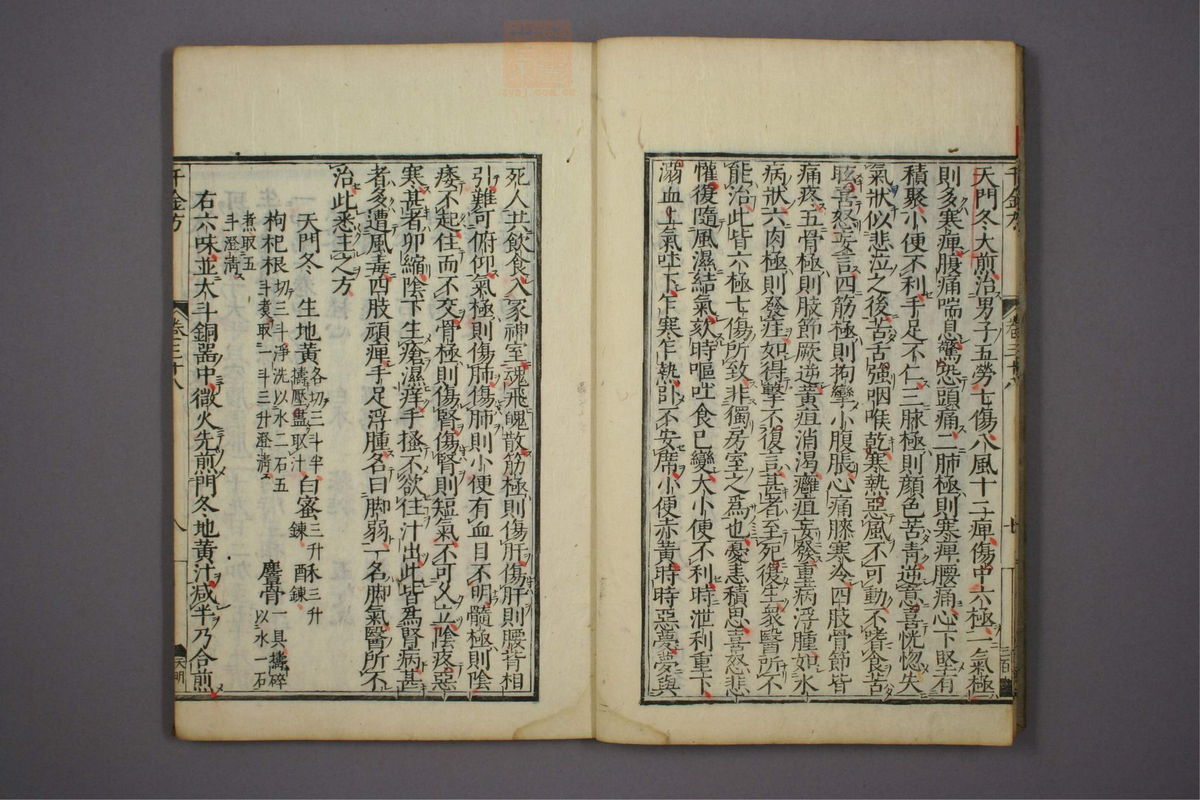 天門冬大煎治男子五勞七傷八風十二痺傷中六極一氣極
則多寒痺腹痛喘息驚恐頭痛二肺極則寒痺腰痛心下堅有
積聚小便不利手足不仁三脉極則顏色苦青逆意喜恍惚失
氣狀似悲泣之後苦舌強咽喉乾寒熱惡風不可動不嗜食苦
眩喜怒妄言四筋極則拘攣小腹脹心痛膝寒冷四肢骨節皆
痛疼五骨極則肢節厥逆黃疸消渴癰疽妄發重病浮腫如水
病狀六肉極則發疰如得擊不復言甚者至死復生衆醫所不
能治此皆六極七傷所致非獨房室之爲也憂恚積思喜怒悲
懽復隨風濕結氣欬時嘔吐食已變大小便不利時泄利重下
溺血上氣吐下乍寒乍熱卧不安席小便赤黃時時惡夢夢與
千金方 卷三十八
死人共飲食入冢神室魂飛魄散筋極則傷肝傷肝則腰背相
引難可俯仰氣極則傷肺傷肺則小便有血目不明髓極則陰
痿不起住而不交骨極則傷腎傷腎則短氣不可久立陰疼惡
寒甚者卵縮陰下生瘡濕痒手搔不欲住汁出此皆爲腎病甚
者多遭風毒四肢頑痺手足浮腫名曰脚弱一名脚氣醫所不
治此悉主之方
天門冬 生地黃各切三斗半擣壓盡取汁 白蜜三升鍊 酥三升鍊
枸杞根切三斗淨洗以水二石五斗煑取一斗三升澄清 麞骨一具擣碎以水一石
煮取五斗澄淸
右六味並大斗銅器中微火先煎門冬地黃汁减半乃合煎
千金方 卷三十八 八